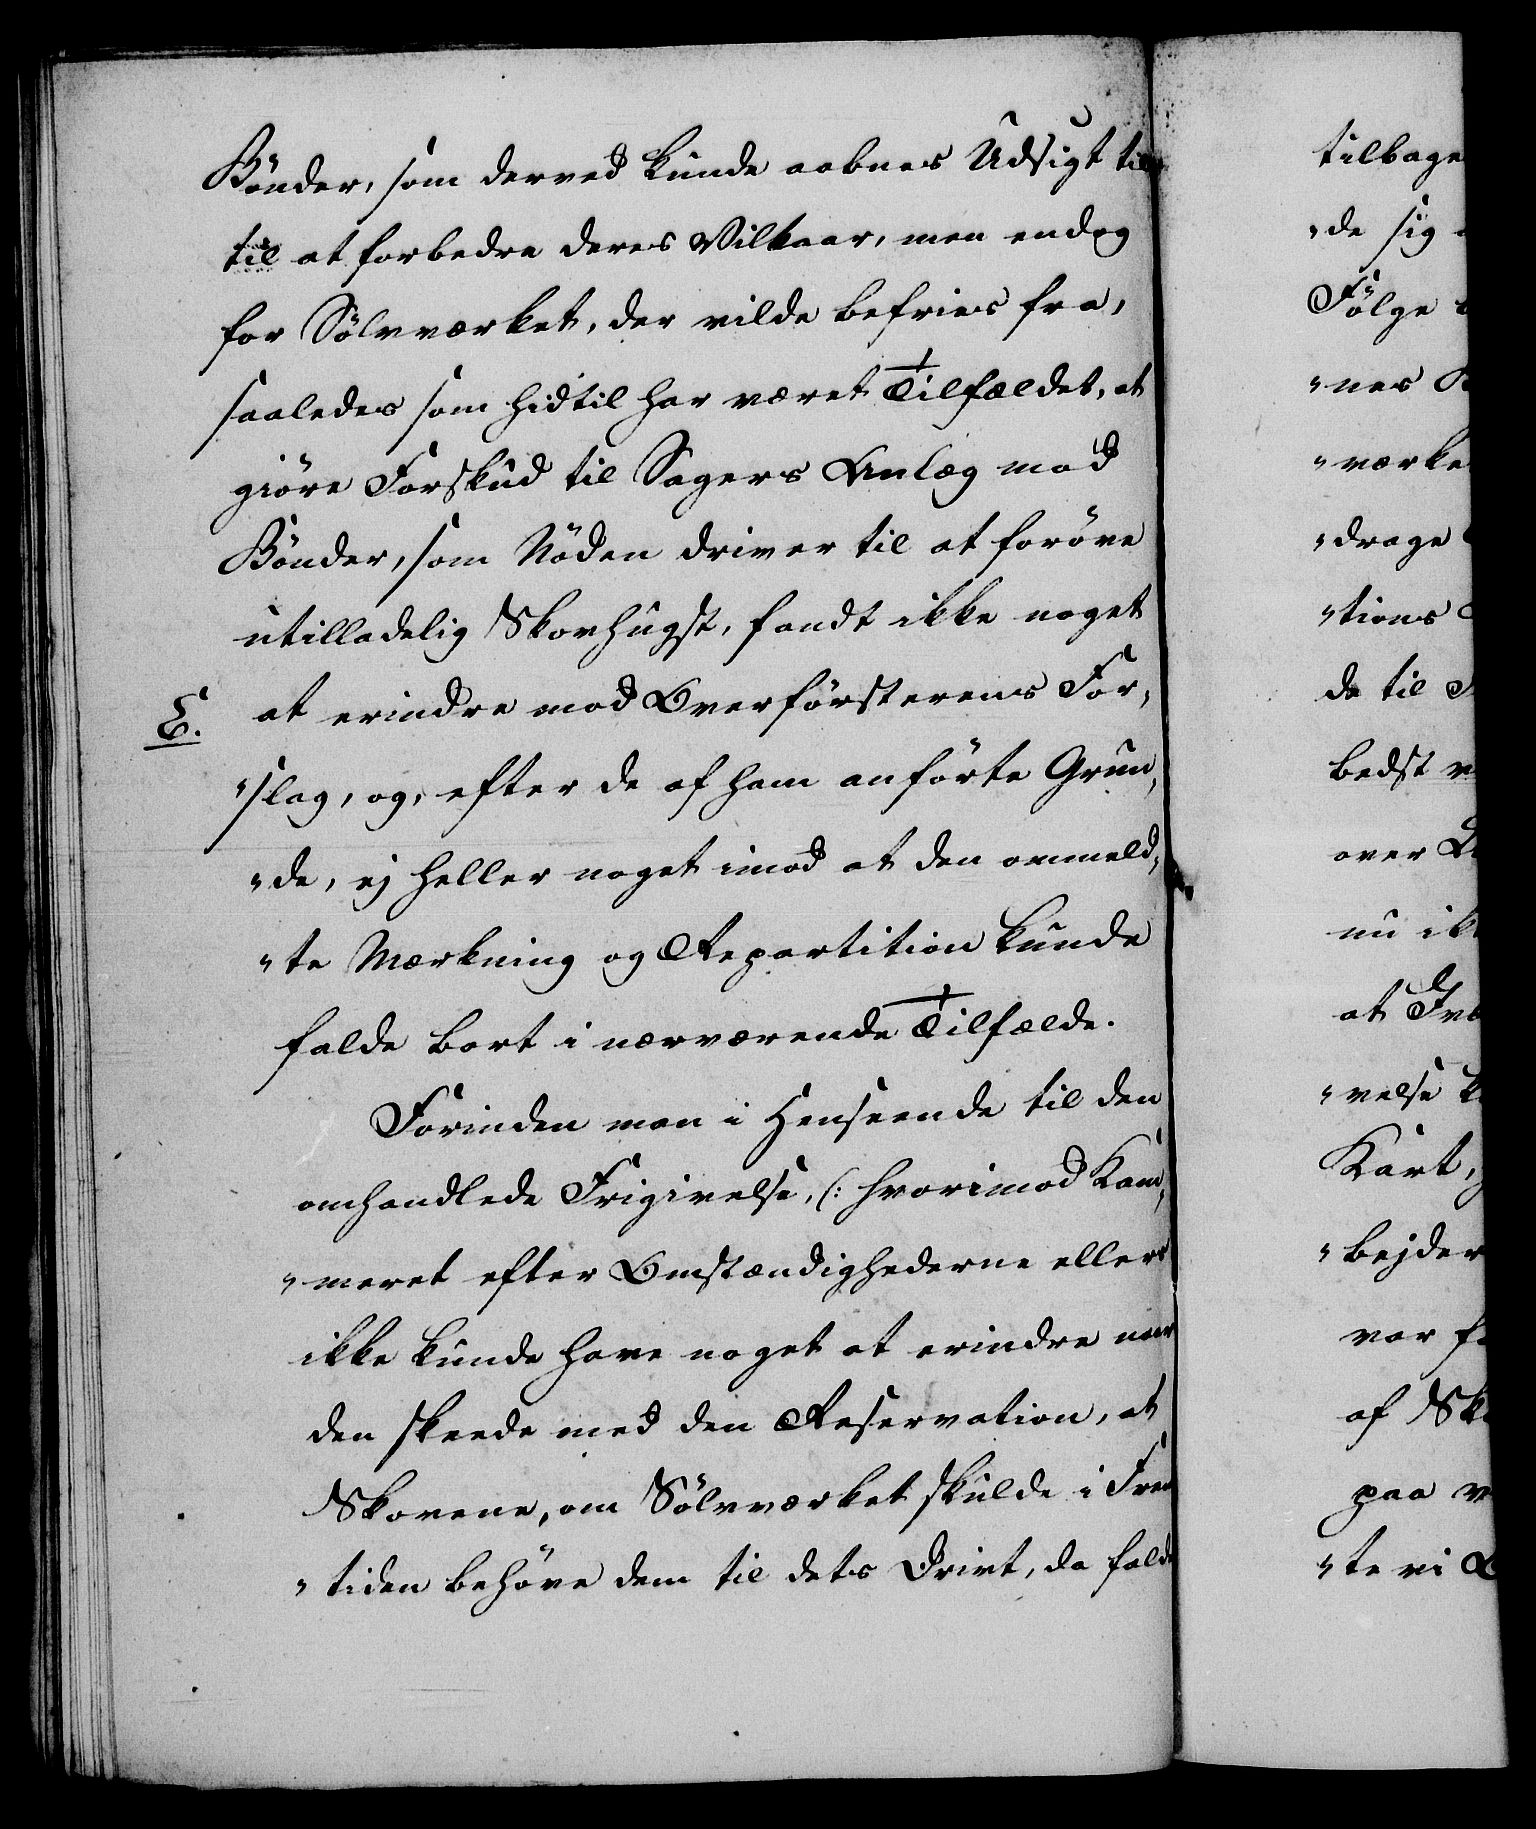 Bönder, som derved kunde aabnes Udsigt til
til at forbedre deres Vilkaar, men endog
for Sölvværket, der vilde befries fra,
saaledes som hidtil har været Tilfældet, at
giöre Forskud til Sagers Anlæg mod
Bönder, som Nöden driver til at foröve
utilladelig Skovhugst, fandt ikke noget
E. at erindre mod Overförsterens For,
"slag, og, efter de af ham anförte Grun,
"de, ej heller noget imod at den ommeld,
"te Mærkning og Repartition kunde
falde bort i nærværende Tilfælde.
Forinden man i Henseende til den
omhandlede Frigivelse, (: hvorimod Kam,
"meret efter Omstændighederne ellers
ikke kunde have noget at erindre naar
den skeede med den Reservation, at
Skovene, om Sölvværket skulde i Frem
"tiden behöve dem til dets Drivt, da falde
tilbage
"de sig
Fölge
"nes
"værke
"drage
"tions
de til
bedst
over
nu ik
at
"velse
Kart,
"bejder
var
af Sk
paa
"te vi